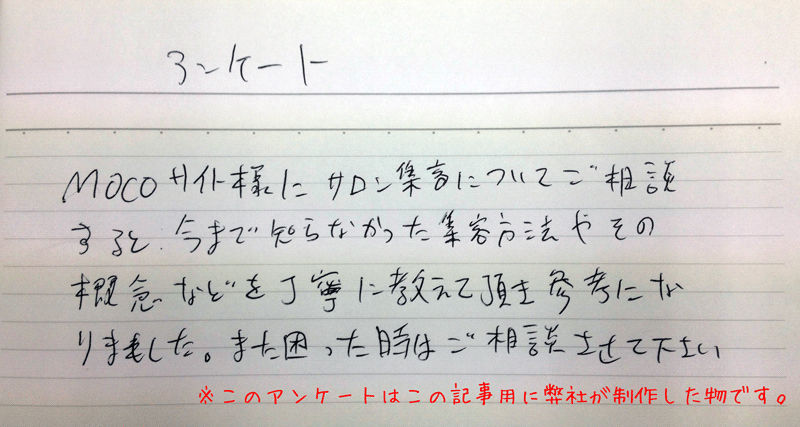 アンケート
MOCOサイト様にサロン集客についてご相談
すると、今まで知らなかった集客方法やその
概念などを丁寧に教えて頂き参考にな
りました。また困った時はご相談させて下さい
※このアンケートはこの記事用に弊社が制作した物です。